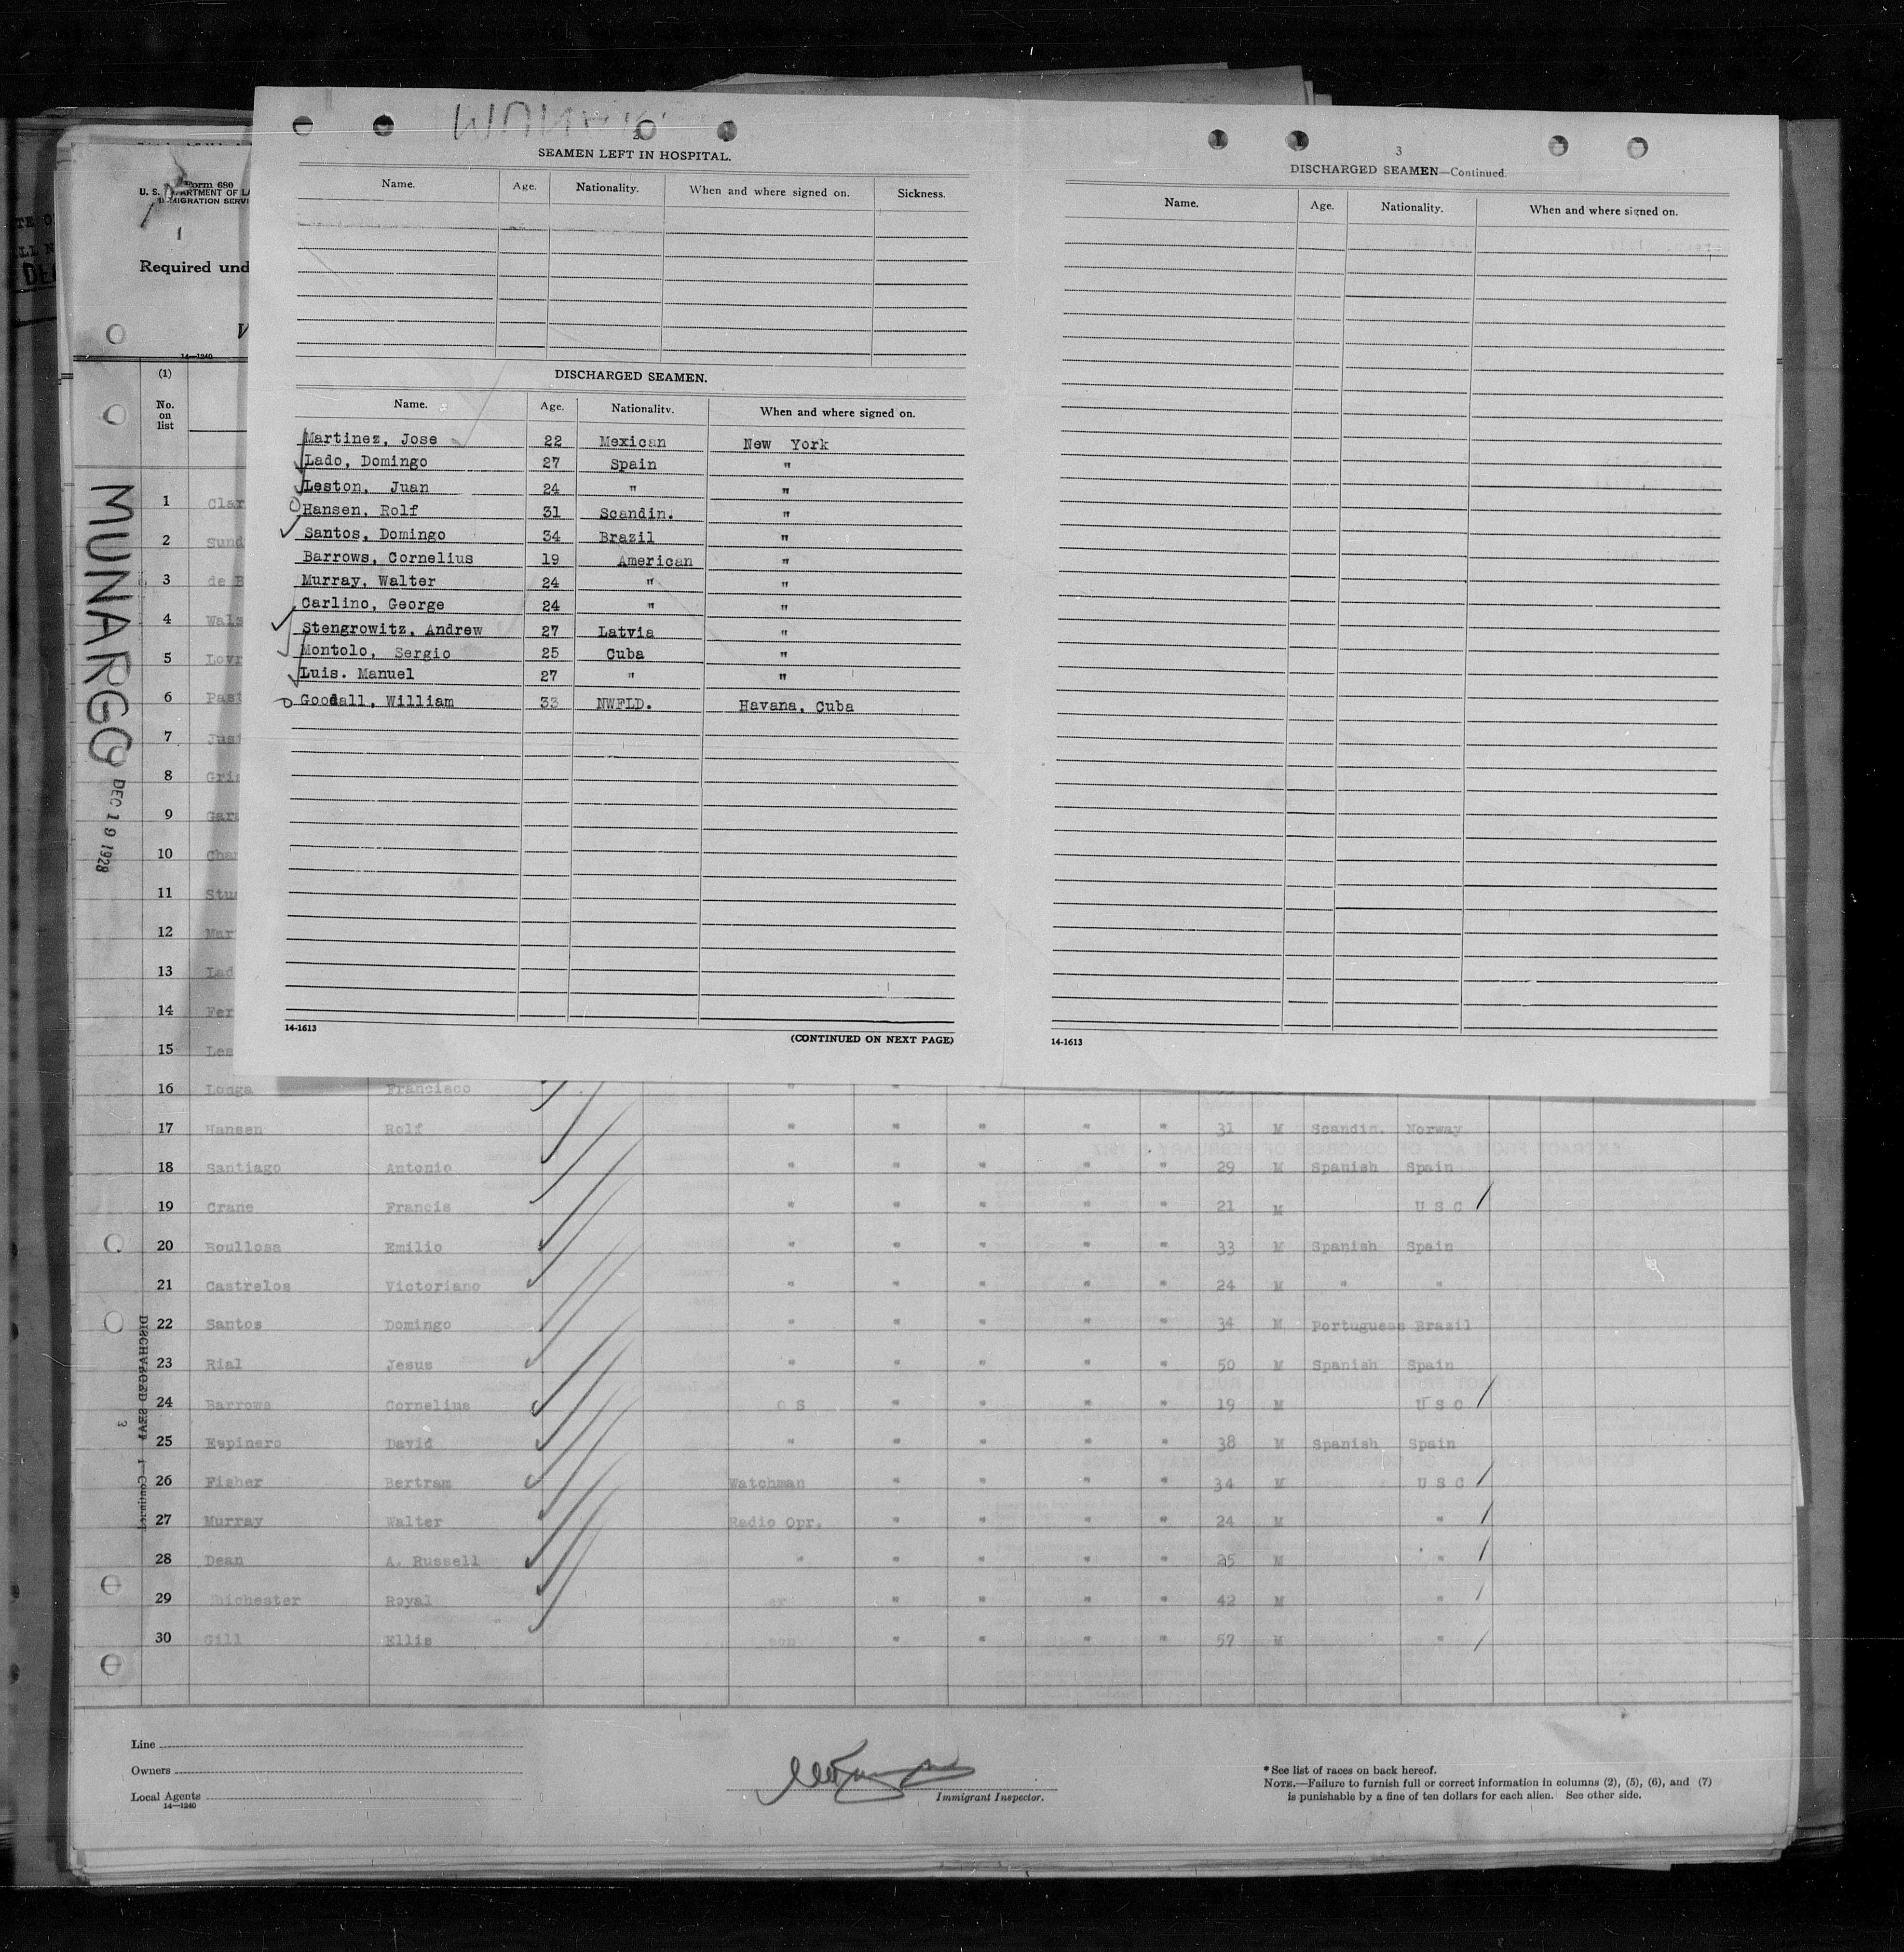 2
SEAMEN LEFT IN HOSPITAL.
Name. Age. Nationality. When and where signed on. Sickness.
DISCHARGED SEAMEN.
Name. Age. Nationality. When and where signed on.
Martinez, Jose 22 Mexican New York
Lado, Domingo 27 Spain "
Leston, Juan 24 " "
Hansen, Rolf 31 Scandin. "
Santos, Domingo 34 Brazil "
Barrows, Cornelius 19 American "
Murray, Walter 24 " "
Carlino, George 24 " "
Stengrowitz, Andrew 27 Latvia "
Montolo, Sergio 25 Cuba "
Luis. Manuel 27 " "
Goodall, William 33 NWFLD. Havana, Cuba
14-1613
(CONTINUED ON NEXT PAGE)
3
DISCHARGED SEAMEN—Continued.
Name. Age. Nationality. When and where signed on.
14-1613
Form 680
U. S.
Required und
14—1240
(1)
No.
on
list
MUNARGO
DEC 19 1928
1 Clar
2 Sund
3 de B
4 Wals
5 Lovr
6 Past
7 Just
8 Gris
9 Gara
10 Char
11 Stu
12 Mar
13 Lad
14 Fer
15 Les
16 Longa Francisco " " " " "
17 Hansen Rolf " " " " " 31 M Scandin. Norway
18 Santiago Antonio " " " " " 29 M Spanish Spain
19 Crane Francis " " " " " 21 M U S C
20 Boullosa Emilio " " " " " 33 M Spanish Spain
21 Castrelos Victoriano " " " " " 24 M " "
22 Santos Domingo " " " " " 34 M Portugues Brazil
23 Rial Jesus " " " " " 50 M Spanish Spain
24 Barrows Cornelius O S " " " " 19 M U S C
25 Espinero David " " " " " 38 M Spanish Spain
26 Fisher Bertram Watchman " " " " 34 M U S C
27 Murray Walter Radio Opr. " " " " 24 M "
28 Dean A. Russell " " " " " 25 M "
29 hichester Royal " " " " 42 M "
30 Gill Ellis " " " " 57 M "
Line
Owners
Local Agents
14—1240
Immigrant Inspector.
* See list of races on back hereof.
NOTE.—Failure to furnish full or correct information in columns (2), (5), (6), and (7)
is punishable by a fine of ten dollars for each alien. See other side.